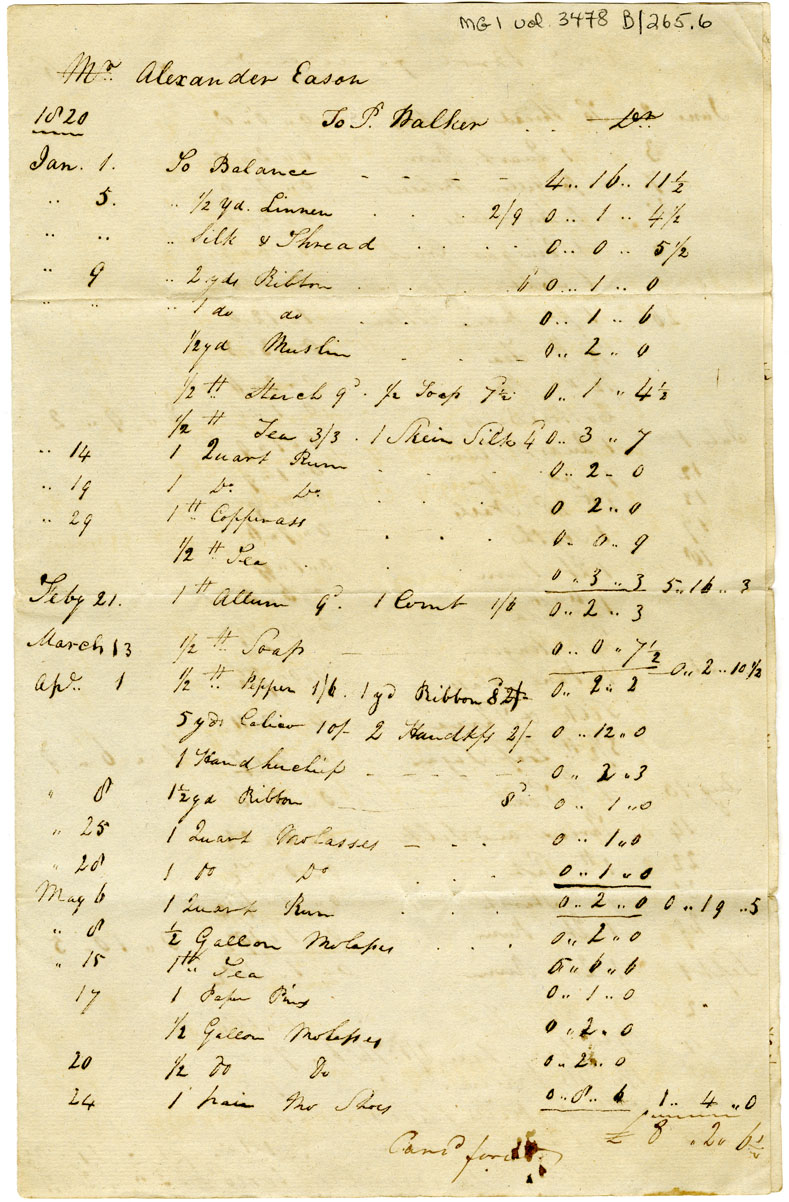 MG1 vol. 3478 B/265.6
Mr. Alexander Eason
1820 To P. Walker . . Dr.
Jan. 1. To Balance - - - - 4 .. 16 .. 11½
" 5. " ½ yd. Linnen . . . 2/9 0 .. 1 .. 4½
" " " Silk & Thread . . . . 0 .. 0 .. 5½
" 9 " 2 yds Ribbon . . . . 6d 0 .. 1 .. 0
" " " 1 do do . . . 0 .. 1 .. 6
½ yd Muslin . . . 0 .. 2 .. 0
½ tt Starch 9d. ½ Soap 7½ 0 .. 1 .. 4½
½ tt Tea 3/3 . 1 Skein Silk 4d 0 .. 3 .. 7
" 14 1 Quart Rum . . . 0 .. 2 - 0
" 19 1 Do. Do. . . . 0 2 .. 0
" 29 1 tt Copperass . . . 0 - 0 .. 9
½ tt Tea . . . 0 .. 3 .. 3 5 .. 16 .. 3
Feby 21. 1 tt Allum 9d. 1 Comb 1/6 0 .. 2 .. 3
March 13 ½ tt Soap — 0 .. 0 .. 7½ 0 .. 2 .. 10½
Apl. 1 ½ tt Pepper 1/6 . 1 yd Ribbon 8d 0 .. 2 .. 2
5 yds Calico 10/- 2 Handkfs 2/- 0 .. 12 .. 0
1 Handkerchief - - - - 0 .. 2 .. 3
" 8 1½ yd Ribbon 8d 0 .. 1 .. 0
" 25 1 Quart Molasses - . . 0 .. 1 .. 0
" 28 1 Do Do . . . 0 .. 1 .. 0
May 6 1 Quart Rum . . . 0 .. 2 .. 0 0 .. 19 .. 5
" 8 ½ Gallon Molasses . . . 0 .. 2 .. 0
" 15 1 tt Tea 0 .. 6 .. 6
17 1 Paper Pins 0 .. 1 .. 0
½ Gallon Molasses 0 .. 2 .. 0
20 ½ Do Do 0 .. 2 .. 0
24 1 pair Mo Shoes 0 .. 8 .. 6 1 .. 4 .. 0
Carrd ford £ 8 .. 2 .. 6½